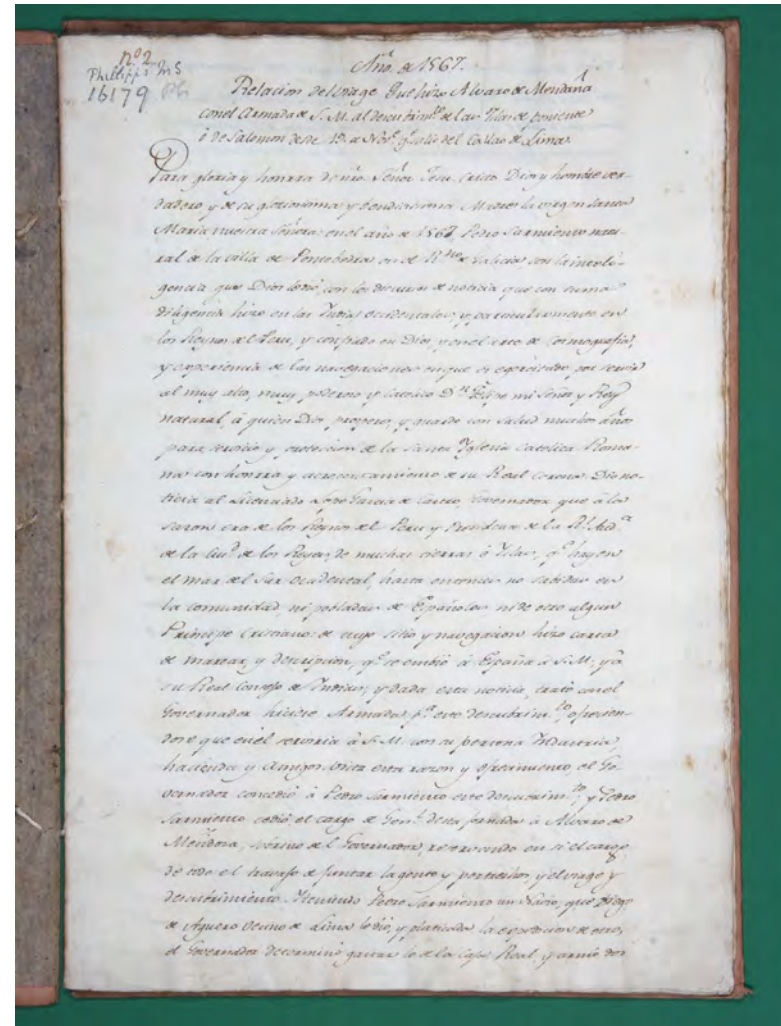 nº 2
Phillipps MS
16179
Año. de 1567.
Relacion del viage que hizo Alvaro de Mendaña
con el Armada de S. M. al descubrimto. de las Yslas de poniente
ò de Salomon desde 19. de Novre. q. salió del Callao de Lima.
Para gloria y honrra de nro. Señor Jesu Cristo Dios y hombre ver-
dadero y de su gloriosissima y bendicissima Madre la virgen santa
Maria nuestra Señora: en el año de 1567 Pedro Sarmiento natu-
ral de la villa de Pontebedra en el Rno. de Galicia con la inteli-
gencia que Dios le dió, con los discursos de noticia que con suma
diligencia hizo en las Yndias occidentales y particularmente en
los Reynos del Peru, y confiado en Dios y en el arte de Cosmografia,
y experiencia de las navegaciones en que es egercitado, por servir
al muy alto, muy poderoso y Catolico Dn. Felipe mi Señor y Rey
natural, à quien Dios prospere, y guarde con salud muchos años
para servicio y proteccion de la Santa Yglesia Catolica Roma-
na con honrra y acrecentamiento de su Real Corona: Dió no-
ticia al Licenciado Lope Garcia de Castro, Governador que à la
sazon era de los Reynos del Peru y Presidente de la Rl. Auda.
de la Ciud. de los Reyes, de muchas tierras ò Yslas, q. hay en
el mar del Sur Occidental, hasta entonces no sabidas en
la comunidad, ni pobladas de Españoles ni de otro algun
Principe Cristiano: de cuyo sitio y navegacion hizo carta
de marear, y descripcion, q. se embió à España à S. M; y à
su Real Consejo de Yndias; y dada esta noticia, trató con el
Governador hiciese Armada pa. este descubrimto., ofrecien-
dose que en él serviria à S. M. con su persona Yndustria,
hacienda y Amigos. Vista esta razon y ofrecimiento, el Go-
vernador concedió à Pedro Sarmiento este descubrimto., y Pedro
Sarmiento cedió el cargo de Genl. desta jornada à Alvaro de
Mendaña, sobrino del Governador, reservando en si el cargo
de todo el travajo de juntar la gente y pertrechos, y el viage y
descubrimiento. Haviendo Pedro Sarmiento un Navio, que Diego
de Aguero vecino de Lima le dió, y platicada la expedicion de otro,
el Governador determinó gastar lo de la Caja Real, y armó dos